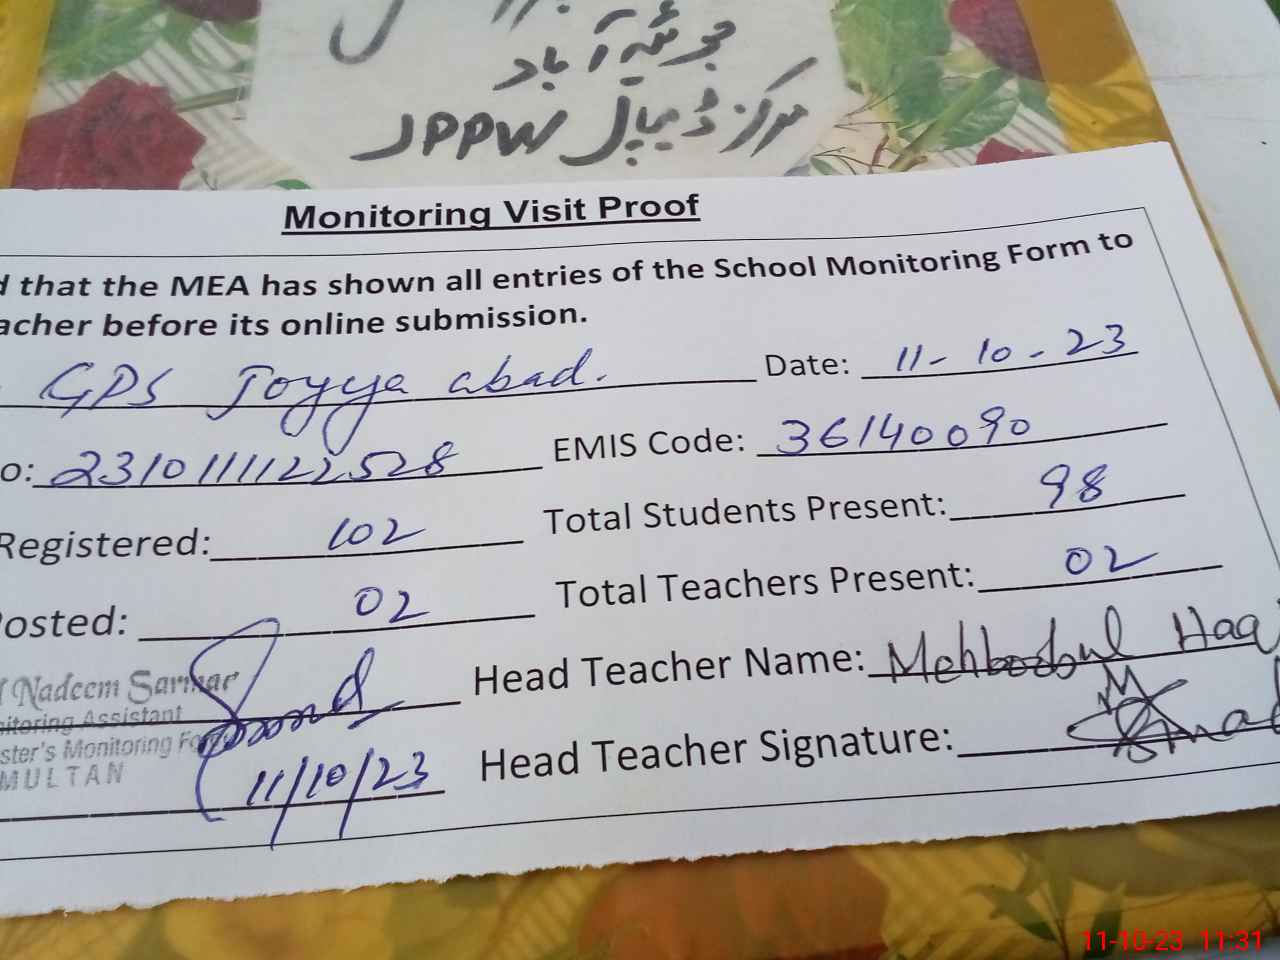 جوئیہ آباد
مرکز ڈیپل JPPW
Monitoring Visit Proof
that the MEA has shown all entries of the School Monitoring Form to
acher before its online submission.
GPS Joyya abad. Date: 11-10-23
o: 2310111122528 EMIS Code: 36140090
Registered: 102 Total Students Present: 98
osted: 02 Total Teachers Present: 02
Nadeem Sarwar Head Teacher Name: Mehboobul Haq
itoring Assistant
ster's Monitoring Fo Head Teacher Signature:
MULTAN
11/10/23
11-10-23 11:31